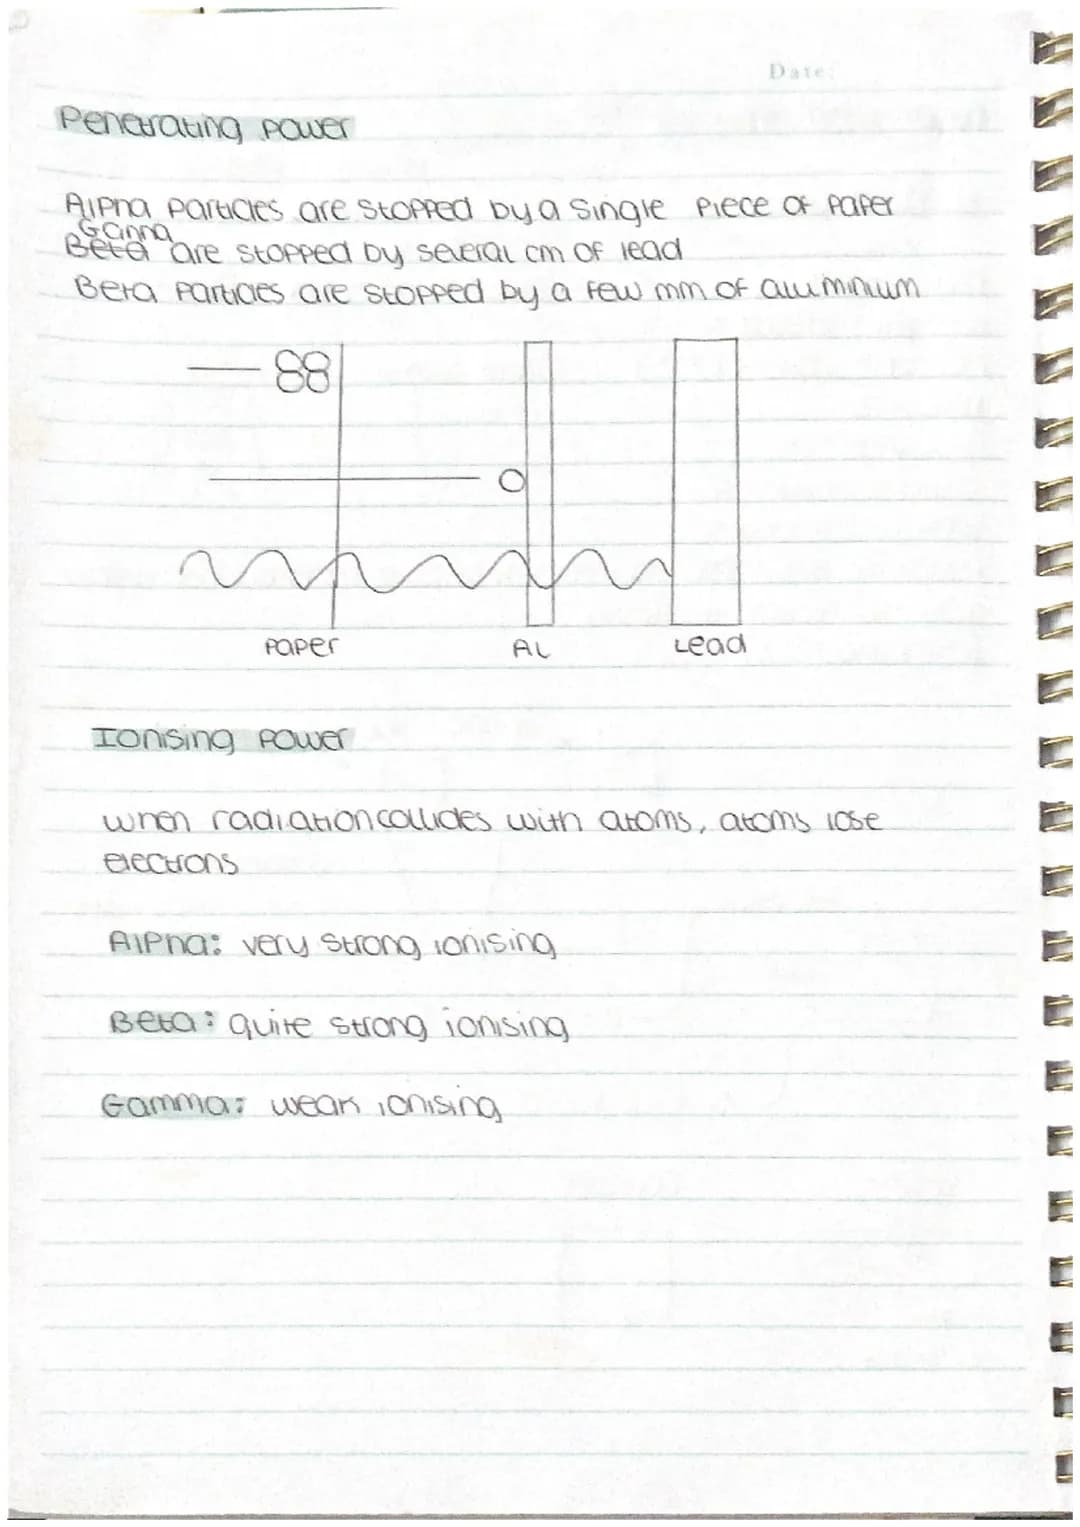 Date:
Penetrating power
Alpha particles are stopped by a single piece of paper
Ganna
Beta are stopped by several cm of lead
Beta particles are stopped by a few mm of aluminium
Paper
AL
Lead
Ionising power
when radiation collides with atoms, atoms lose
electrons
Alpha: very strong ionising
Beta: quite strong ionising
Gamma: weak ionising